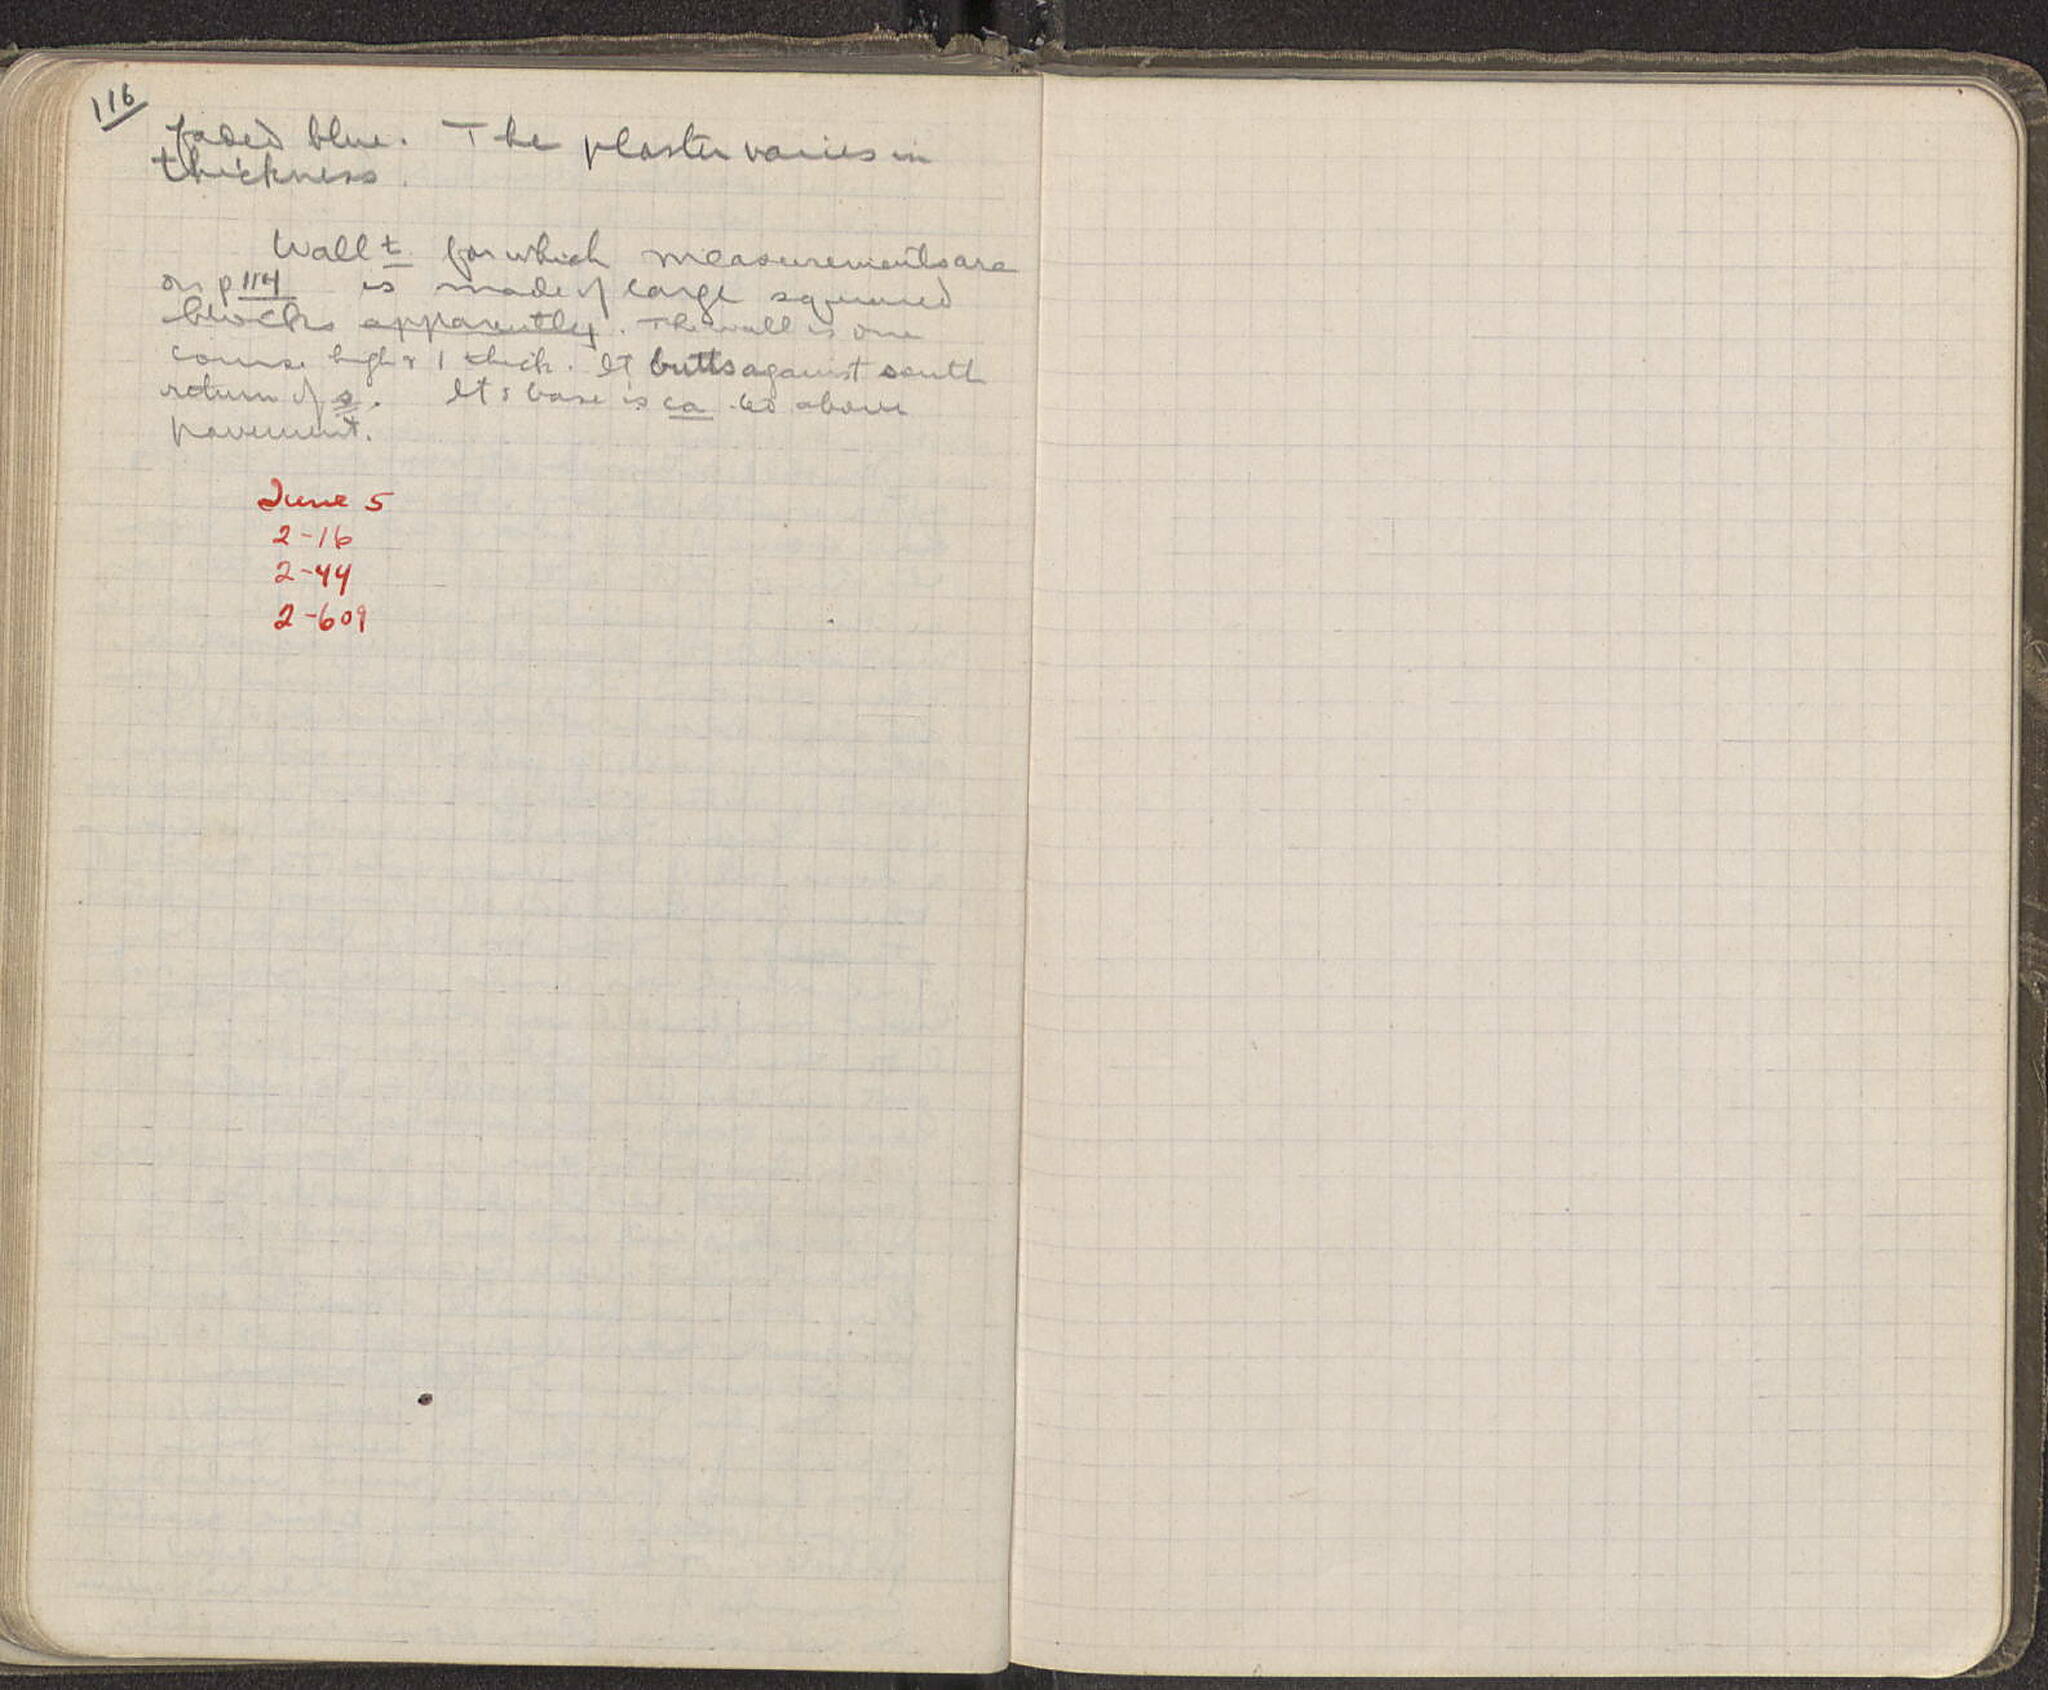 116
faded blue. The plaster varies in
thickness.
Wall t for which measurements are
on p 114 is made of large squared
blocks apparently. The wall is one
course high & 1 thick. It butts against south
return of s. It's base is ca .60 above
pavement.
June 5
2-16
2-44
2-609